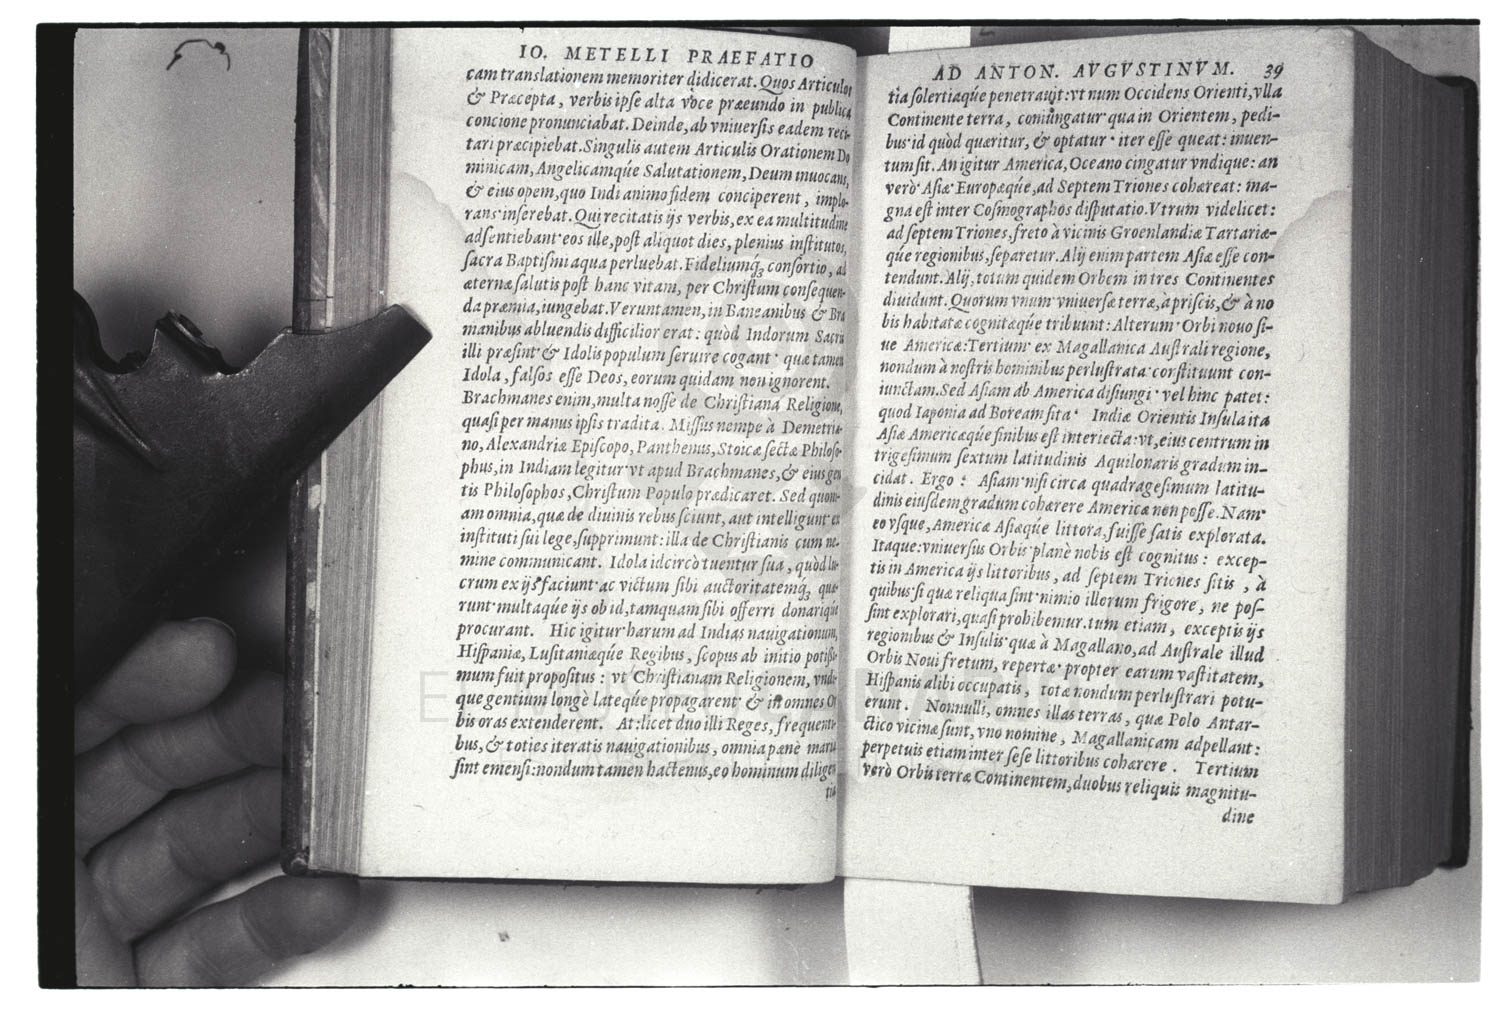 IO. METELLI PRAEFATIO
cam translationem memoriter didicerat. Quos Articulos
& Præcepta, verbis ipse alta voce præeundo in publica
concione pronunciabat. Deinde, ab vniuersis eadem reci-
tari præcipiebat. Singulis autem Articulis Orationem Do
minicam, Angelicamq́ue Salutationem, Deum inuocans,
& eius opem, quo Indi animo fidem conciperent, implo-
rans inserebat. Qui recitatis ijs verbis, ex ea multitudine
adsentiebant eos ille, post aliquot dies, plenius institutos,
sacra Baptismi aqua perluebat. Fideliumq́; consortio, ad
æternæ salutis post hanc vitam, per Christum consequen-
da præmia, iungebat. Veruntamen, in Baneanibus & Bra
manibus abluendis difficilior erat: quòd Indorum Sacris
illi præsint & Idolis populum seruire cogant quæ tamen
Idola, falsos esse Deos, eorum quidam non ignorent.
Brachmanes enim, multa nosse de Christiana Religione,
quasi per manus ipsis tradita. Missus nempe à Demetria-
no, Alexandriæ Episcopo, Panthenus, Stoicæ sectæ Philoso-
phus, in Indiam legitur vt apud Brachmanes, & eius gen
tis Philosophos, Christum Populo prædicaret. Sed quoni-
am omnia, quæ de diuinis rebus sciunt, aut intelligunt ex
instituti sui lege, supprimunt: illa de Christianis cum ne-
mine communicant. Idola idcircò tuentur sua, quòd lu-
crum ex ijs faciunt ac victum sibi auctoritatemq́; quæ-
runt multaq́ue ijs ob id, tamquam sibi offerri donariq́ue
procurant. Hic igitur harum ad Indias nauigationum,
Hispaniæ, Lusitaniæq́ue Regibus, scopus ab initio potissi-
mum fuit propositus : vt Christianam Religionem, vnde-
que gentium longè lateq́ue propagarent & in omnes Or
bis oras extenderent. At: licet duo illi Reges, frequenti-
bus, & toties iteratis nauigationibus, omnia pænè maria
sint emensi: nondum tamen hactenus, eo hominum diligen
tia
AD ANTON. AVGVSTINVM. 39
tia solertiaq́ue penetrauit: vt num Occidens Orienti, vlla
Continente terra, coniungatur qua in Orientem, pedi-
bus id quòd quæritur, & optatur iter esse queat: inuen-
tum sit. An igitur America, Oceano cingatur vndique: an
verò Asiæ Europæq́ue, ad Septem Triones cohæreat: ma-
gna est inter Cosmographos disputatio. Vtrum videlicet:
ad septem Triones, freto à vicinis Groenlandiæ Tartariæ-
q́ue regionibus, separetur. Alij enim partem Asiæ esse con-
tendunt. Alij, totum quidem Orbem in tres Continentes
diuidunt. Quorum vnum vniuersæ terræ, à priscis, & à no
bis habitatæ cognitæq́ue tribuunt: Alterum Orbi nouo si-
ue Americæ: Tertium ex Magallanica Australi regione,
nondum à nostris hominibus perlustrata constituunt con-
iunctam. Sed Asiam ab America disiungi vel hinc patet:
quod Iaponia ad Boream sita Indiæ Orientis Insula ita
Asiæ Americæque finibus est interiecta: vt, eius centrum in
trigesimum sextum latitudinis Aquilonaris gradum in-
cidat. Ergo : Asiam nisi circa quadragesimum latitu-
dinis eiusdem gradum cohærere Americæ non posse. Nam
eo vsque, Americæ Asiæq́ue littora, fuisse satis explorata.
Itaque: vniuersus Orbis planè nobis est cognitus : excep-
tis in America ijs littoribus, ad septem Triones sitis , à
quibus si quæ reliqua sint nimio illorum frigore, ne pos-
sint explorari, quasi prohibemur. tum etiam, exceptis ijs
regionibus & Insulis quæ à Magallano, ad Australe illud
Orbis Noui fretum, repertæ propter earum vastitatem,
Hispanis alibi occupatis, totæ nondum perlustrari potu-
erunt. Nonnulli, omnes illas terras, quæ Polo Antar-
ctico vicinæ sunt, vno nomine, Magallanicam adpellant:
perpetuis etiam inter sese littoribus cohærere. Tertium
verò Orbis terræ Continentem, duobus reliquis magnitu-
dine